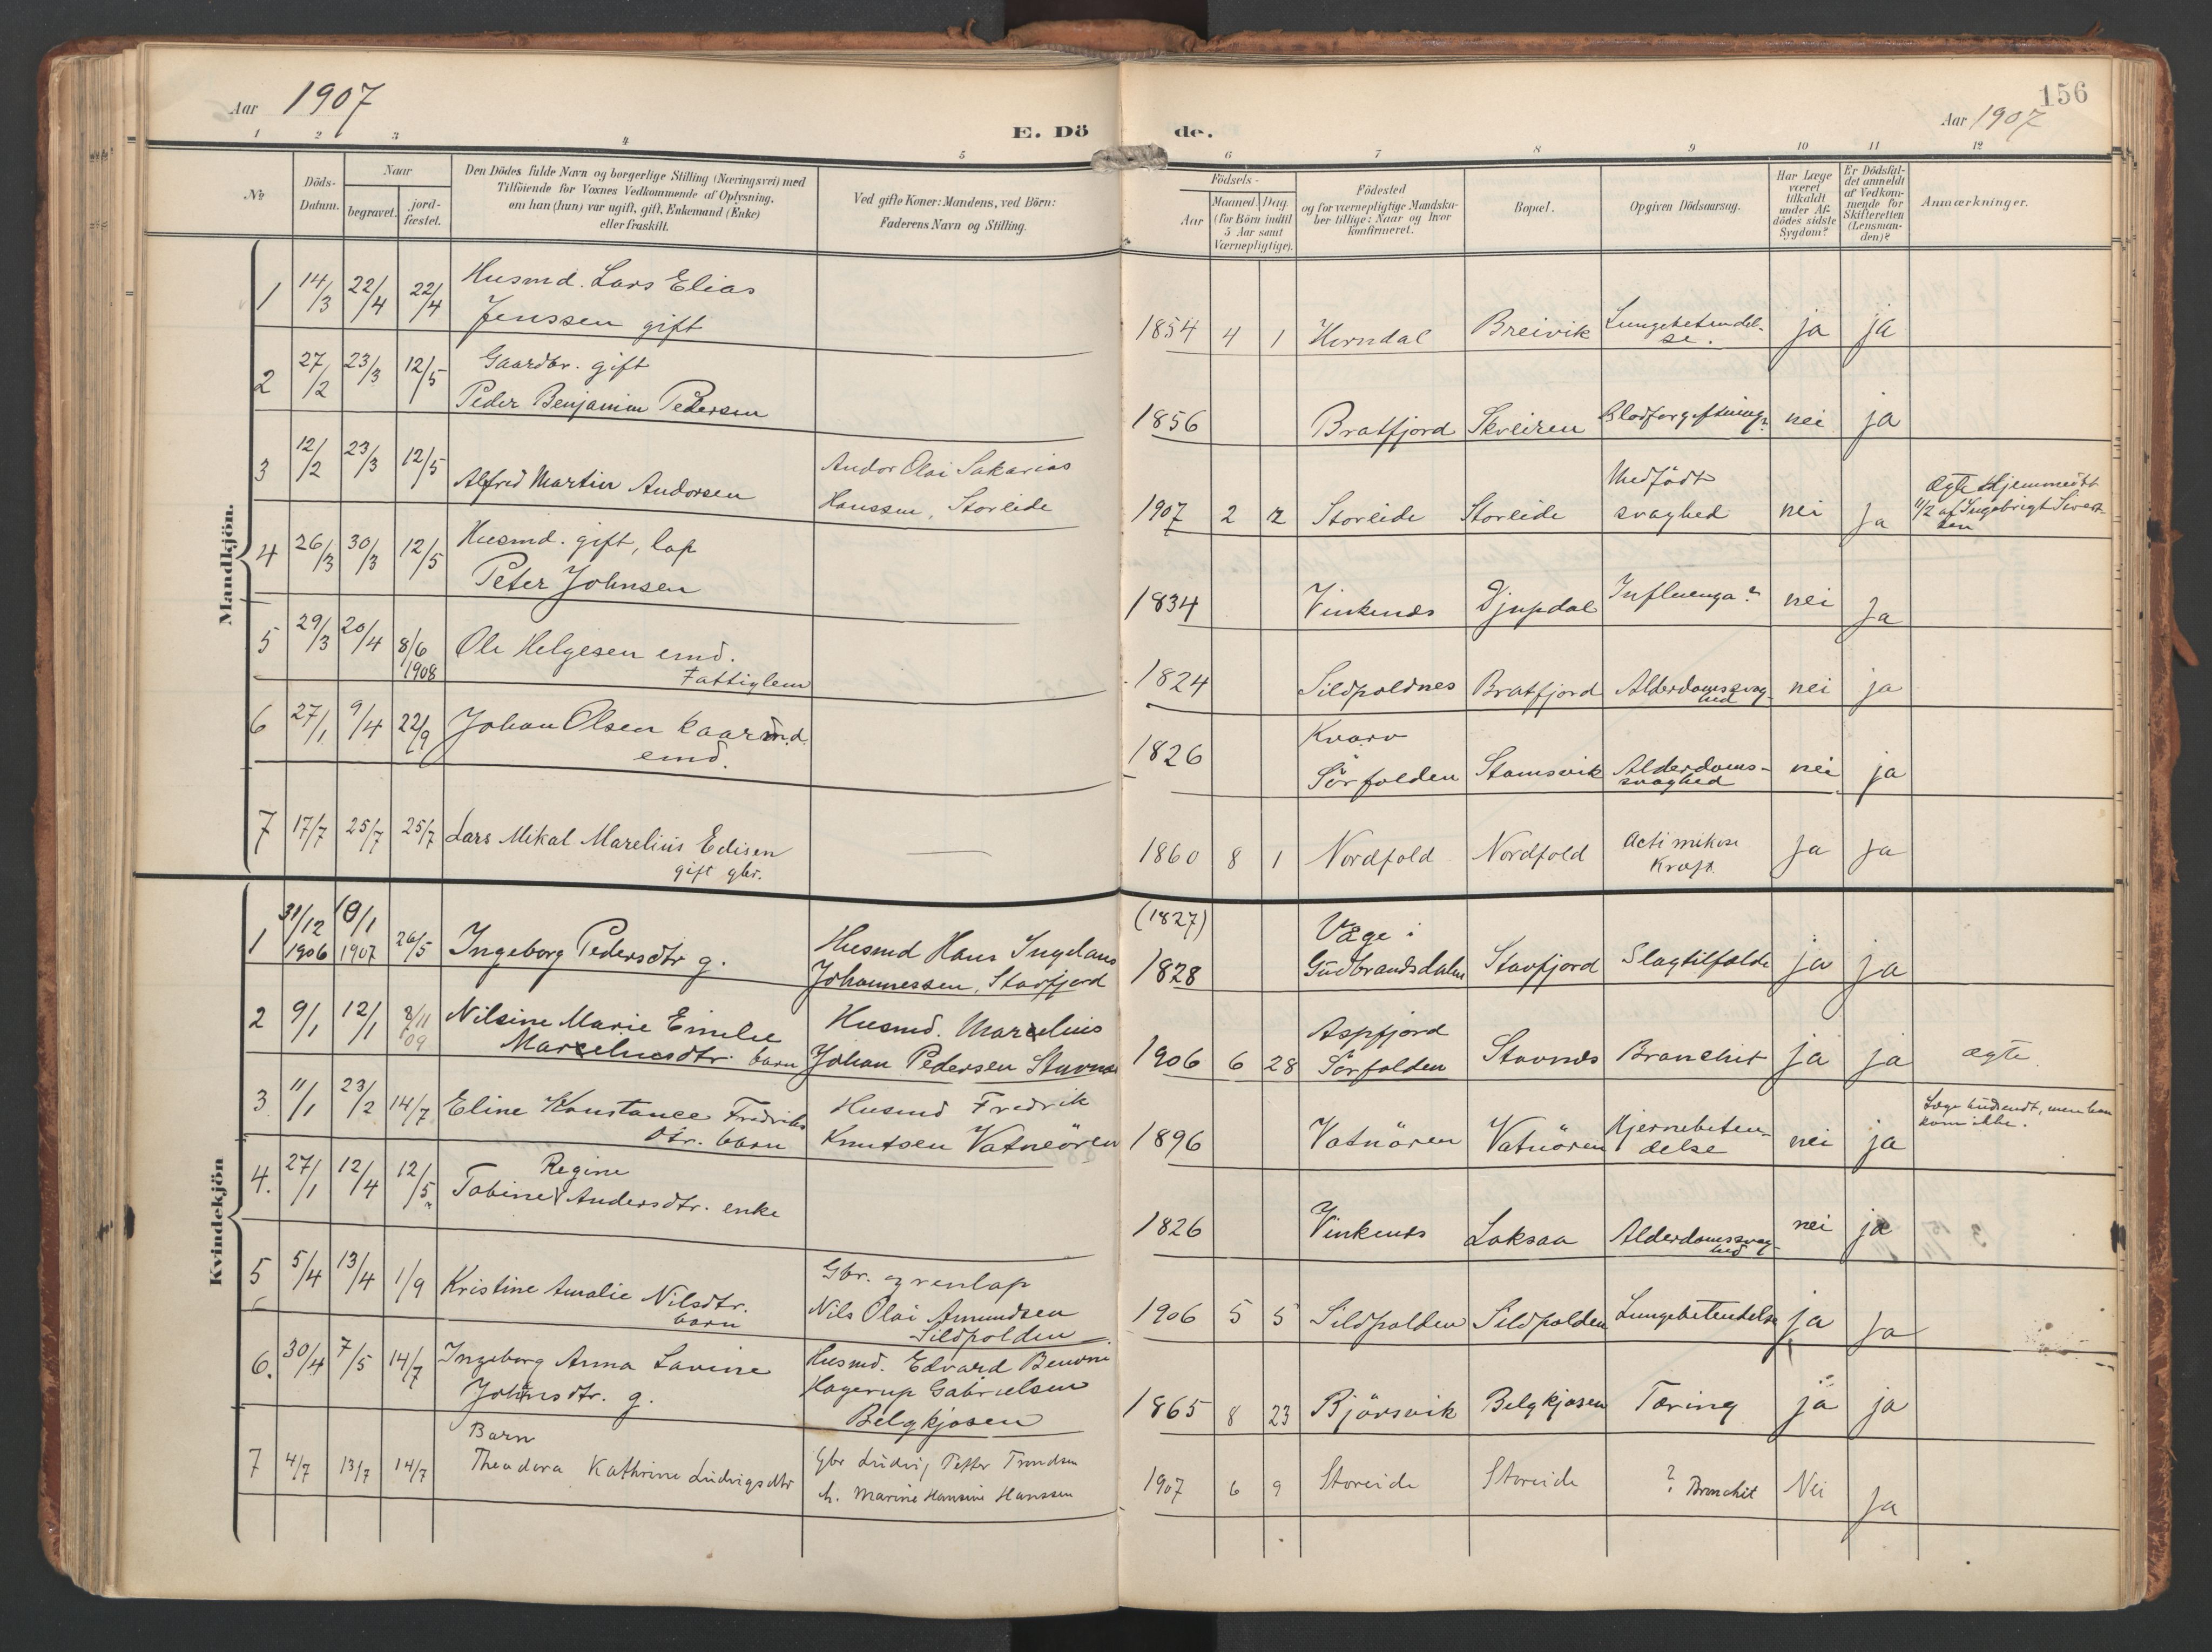 Aar 1907
E. Döde.
156
Aar 1907
1 2 3 4 5 6 7 8 9 10 11 12
No
Döds-Datum.
Naar
begravet.
jord-fæstet.
Den Dödes fulde Navn og borgerlige Stilling (Næringsvei) med
Tilföiende for Voxnes Vedkommende af Oplysning,
om han (hun) var ugift, gift, Enkemand (Enke)
eller fraskilt.
Ved gifte Koner: Mandens, ved Börn:
Faderens Navn og Stilling.
Födsels-
Aar
Maaned. Dag.
(for Börn indtil
5 Aar samt
Værnepligtige).
Födested
og for værnepligtige Mandska-
ber tillige: Naar og hvor
konfirmeret.
Bopæl.
Opgiven Dödsaarsag.
Har Læge
været
tilkaldt
under Af-
dödes sidste
Sygdom?
Er Dödsfal-
det anmeldt
af Vedkom-
mende for
Skifteretten
(Lensman-
den)?
Anmærkninger.
Mandkjön.
1 14/3 22/4 22/4 Husmd. Lars Elias
Jenssen gift
1854 4 1 Horndal Breivik Lungebetændel-
se. ja ja
2 27/2 23/3 12/5 Gaardbr. gift
Peder Benjamin Pedersen
1856 Bratfjord Skreiren Blodforgiftning? nei ja
3 12/2 23/3 12/5 Alfred Martin Andorsen
Andor Olai Sakarias
Hanssen, Storeide
1907 2 2 Storeide Storeide Medfödt
svaghed nei ja
Ægte Hjemmedöbt
11/2 af Ingebrigt Sivert-
sen
4 26/3 30/3 12/5 Husmd. gift, lap
Peter Johnsen
1834 Vinkenes Djupdal Influenza? nei ja
5 29/3 20/4 8/6 1908 Ole Helgesen emd.
Fattiglem
1824 Sildpoldnes Bratfjord Alderdomssvag-
hed nei ja
6 27/1 9/4 22/9 Johan Olsen kaarmd.
emd.
1826 Kvarv
Sörfolden Stamsvik Alderdoms-
svaghed nei ja
7 17/7 25/7 25/7 Lars Mikal Marelius Edisen
gift gbr.
1860 8 1 Nordfold Nordfold Actimikose
Kraft ja ja
Kvindekjön
1 31/12 1906 19/1 1907 26/5 Ingeborg Pedersdtr g.
Husmd Hans Ingelaus
Johannessen, Stavfjord
(1827)
1828 Vage i
Gudbrandsdalen Stavfjord Slagtilfælde ja ja
2 9/1 12/1 8/11 09 Nilsine Marie Emelie
Marceliusdtr. barn
Husmd. Marcelius
Johan Pedersen Stavnes
1906 6 28 Aspfjord
Sörfolden Stavnes Bronchit ja ja ægte
3 11/1 23/2 14/7 Eline Konstance Fredriks
dtr. barn
Husmd Fredrik
Knutsen Vatneören
1896 Vatnören Vatnören Hjernebeten-
delse nei ja
Læge budsendt, men kom ikke.
4. 27/1 12/4 12/5 Regine
Tobine Andersdtr. enke
1826 Vinkenes Laksaa Alderdomssvag-
hed nei ja
5 5/4 13/4 1/9 Kristine Amalie Nilsdtr.
barn
Gbr. og renlap
Nils Olai Amundsen
Sildpolden
1906 5 5 Sildpolden Sildpolden Lungebetendelse ja ja
6. 30/4 7/5 14/7 Ingeborg Anna Lavine
Johnsdtr. g.
Husmd. Edvard Benoni
Hagerup Gabrielsen
Belgkjosen
1865 8 23 Björsvik Belgkjosen Tæring ja ja
7 4/7 13/7 14/7 Barn
Theodora Kathrine Ludvigsdtr
Gbr Ludvig Petter Trondsen
h. Marine Hansine Hanssen
1907 6 9 Storeide Storeide ? Bronchit Nei ja